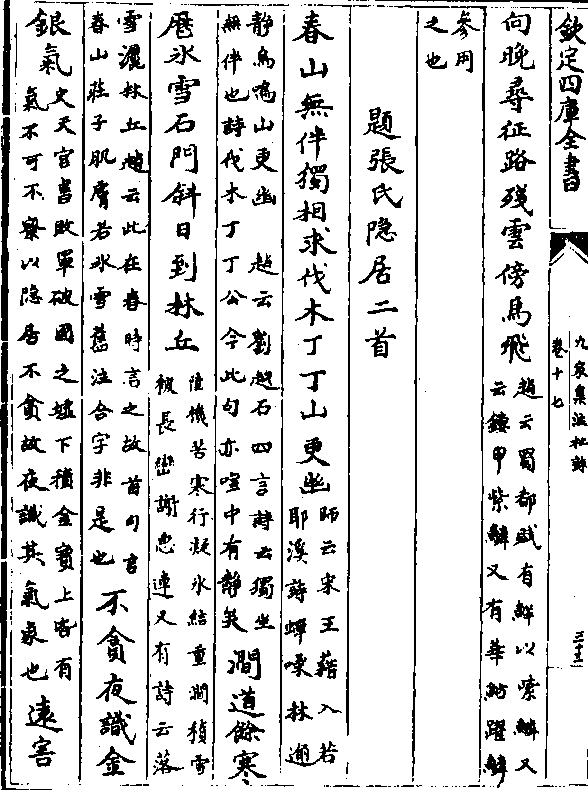 欽定四庫全書
九家集注杜詩
卷十七
三十三
向晚尋征路殘雲傍馬飛
趙云蜀都賦有鮮以紫鱗又
云鏤甲紫鱗又有華魴躍鱗
參用
之也
題張氏隱居二首
春山無伴獨相求伐木丁丁山更幽
師云宋王藉入若
耶溪詩蟬噪林逾
靜鳥鳴山更幽　趙云劉越石四言詩云獨坐
無伴也詩伐木丁丁公今此句亦喧中有靜矣
澗道餘寒
歷冰雪石門斜日到林丘
陸機苦寒行凝冰結重澗積雪
被長巒謝惠連又有詩云落
雪灑林丘趙云此在春時言之故首句言
春山莊子肌膚若冰雪舊注合字非是也
不貪夜識金
銀氣
史天官書敗軍破國之墟下積金寳上皆有
氣不可不察以隠居不貪故夜識其氣象也
遠害